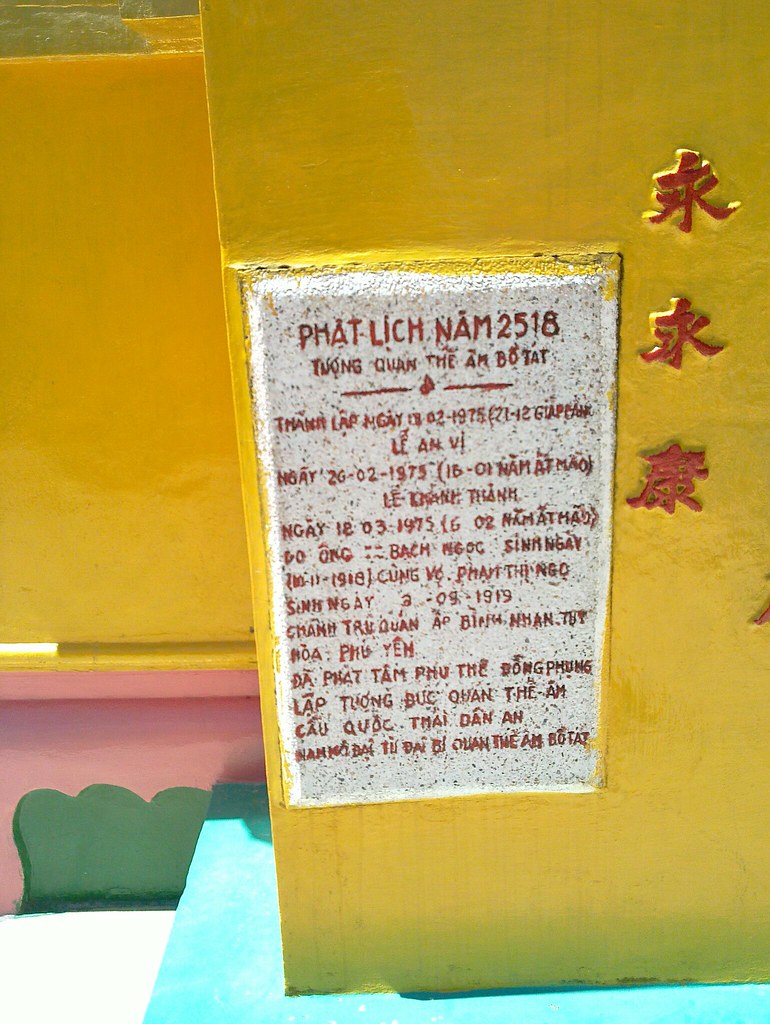 PHẬT LỊCH NĂM 2518
TƯỢNG QUAN THẾ ÂM BỒ TÁT
THÀNH LẬP NGÀY 02-1975 (21-12 GIÁP DẦN
LỄ AN VỊ
NGÀY 26-02-1975 (16-01 NĂM ẤT MÃO)
LỄ KHÁNH THÀNH
NGÀY 18 03-1975 (6 02 NĂM ẤT MÃO)
DO ÔNG BẠCH NGỌC SINH NGÀY
-11-1918) CÙNG VỢ. PHẠM THỊ NGỌ
SINH NGÀY 3 -09-1919
CHÁNH TRÚ QUÁN ẤP BÌNH NHẠN. TUY
HÒA. PHÚ YÊN
ĐÃ PHÁT TÂM PHU THÊ ĐỒNG PHỤNG
LẬP TƯỢNG ĐỨC QUAN THẾ ÂM
CẦU QUỐC THÁI DÂN AN
NAM MÔ ĐẠI TỪ ĐẠI BI QUAN THẾ ÂM BỒ TÁT
永永康